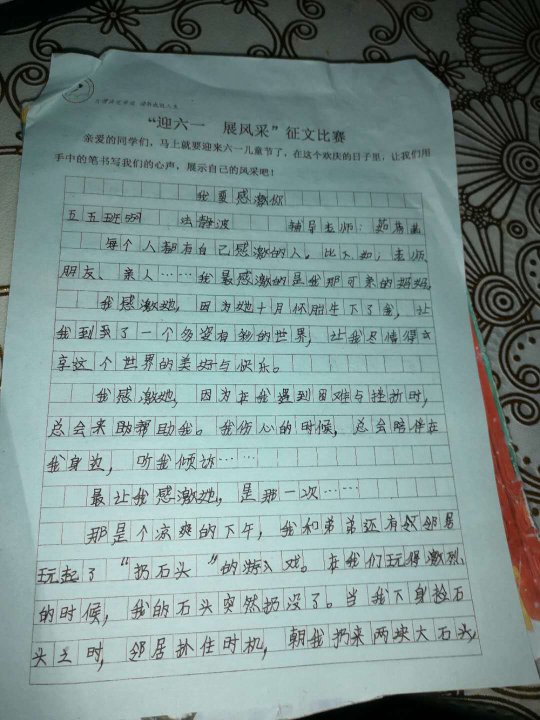 “迎六一 展风采”征文比赛
亲爱的同学们，马上就要迎来六一儿童节了，在这个欢庆的日子里，让我们用
手中的笔书写我们的心声，展示自己的风采吧！
我要感激你
五五班 静波 辅导老师：
每个人都有自己感激的人。比下如：老师、
朋友、亲人……我最感激的是我那可亲的妈妈。
我感激她，因为她十月怀胎生下了我，让
我到到了一个多姿有彩的世界，让我尽情得去
享这个世界的美好与快乐。
我感激她，因为在我遇到困难与挫折时，
总会来助帮助我。我伤心的时候，总会陪伴在
我身边，听我倾诉……
最让我感激她，是那一次……
那是个凉爽的下午，我和弟弟还有邻居
玩起了“扔石头”的游戏。在我们玩得激烈
的时候，我的石头突然扔没了。当我下身捡石
头之时，邻居扑住时机，朝我扔来两块大石头，